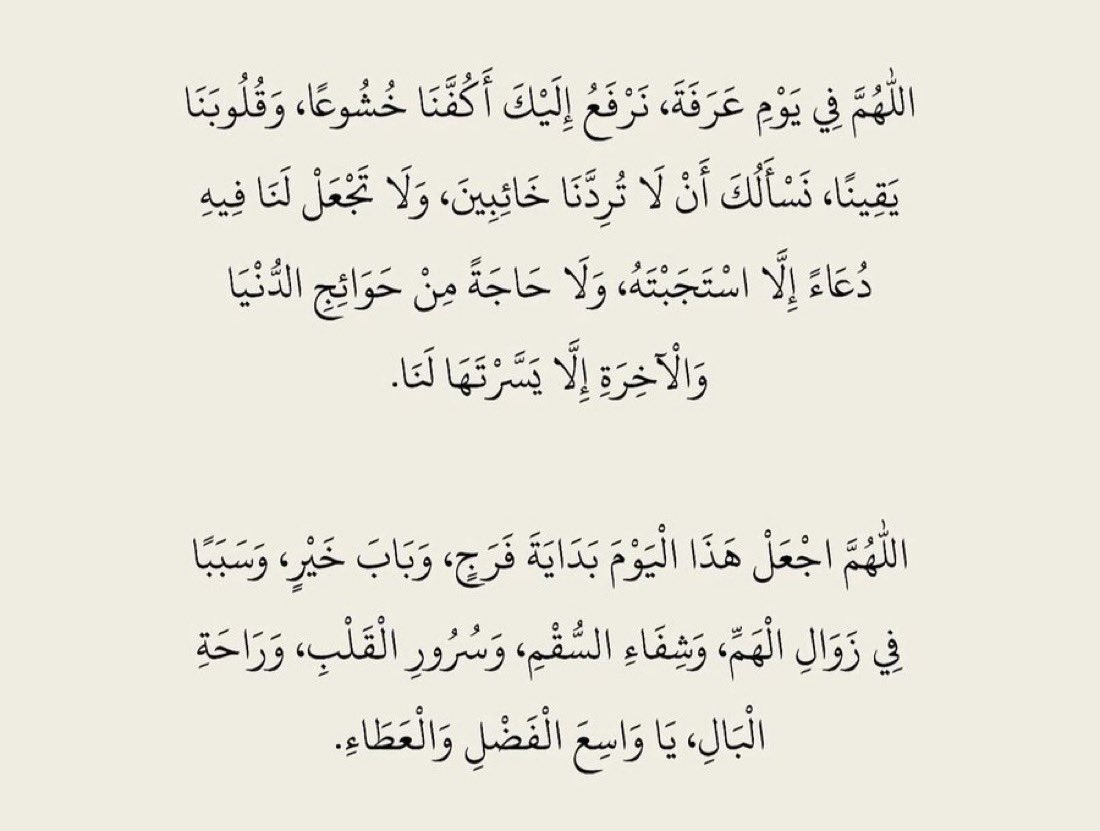 اللَّهُمَّ فِي يَوْمِ عَرَفَةَ، نَرْفَعُ إِلَيْكَ أَكُفَّنَا خُشُوعًا، وَقُلُوبَنَا
يَقِينًا، نَسْأَلُكَ أَنْ لَا تُرِدَّنَا خَائِبِينَ، وَلَا تَجْعَلْ لَنَا فِيهِ
دُعَاءً إِلَّا اسْتَجَبْتَهُ، وَلَا حَاجَةً مِنْ حَوَائِجِ الدُّنْيَا
وَالْآخِرَةِ إِلَّا يَسَّرْتَهَا لَنَا.
اللَّهُمَّ اجْعَلْ هَذَا الْيَوْمَ بَدَايَةَ فَرَجٍ، وَبَابَ خَيْرٍ، وَسَبَبًا
فِي زَوَالِ الْهَمِّ، وَشِفَاءِ السُّقْمِ، وَسُرُورِ الْقَلْبِ، وَرَاحَةِ
الْبَالِ، يَا وَاسِعَ الْفَضْلِ وَالْعَطَاءِ.